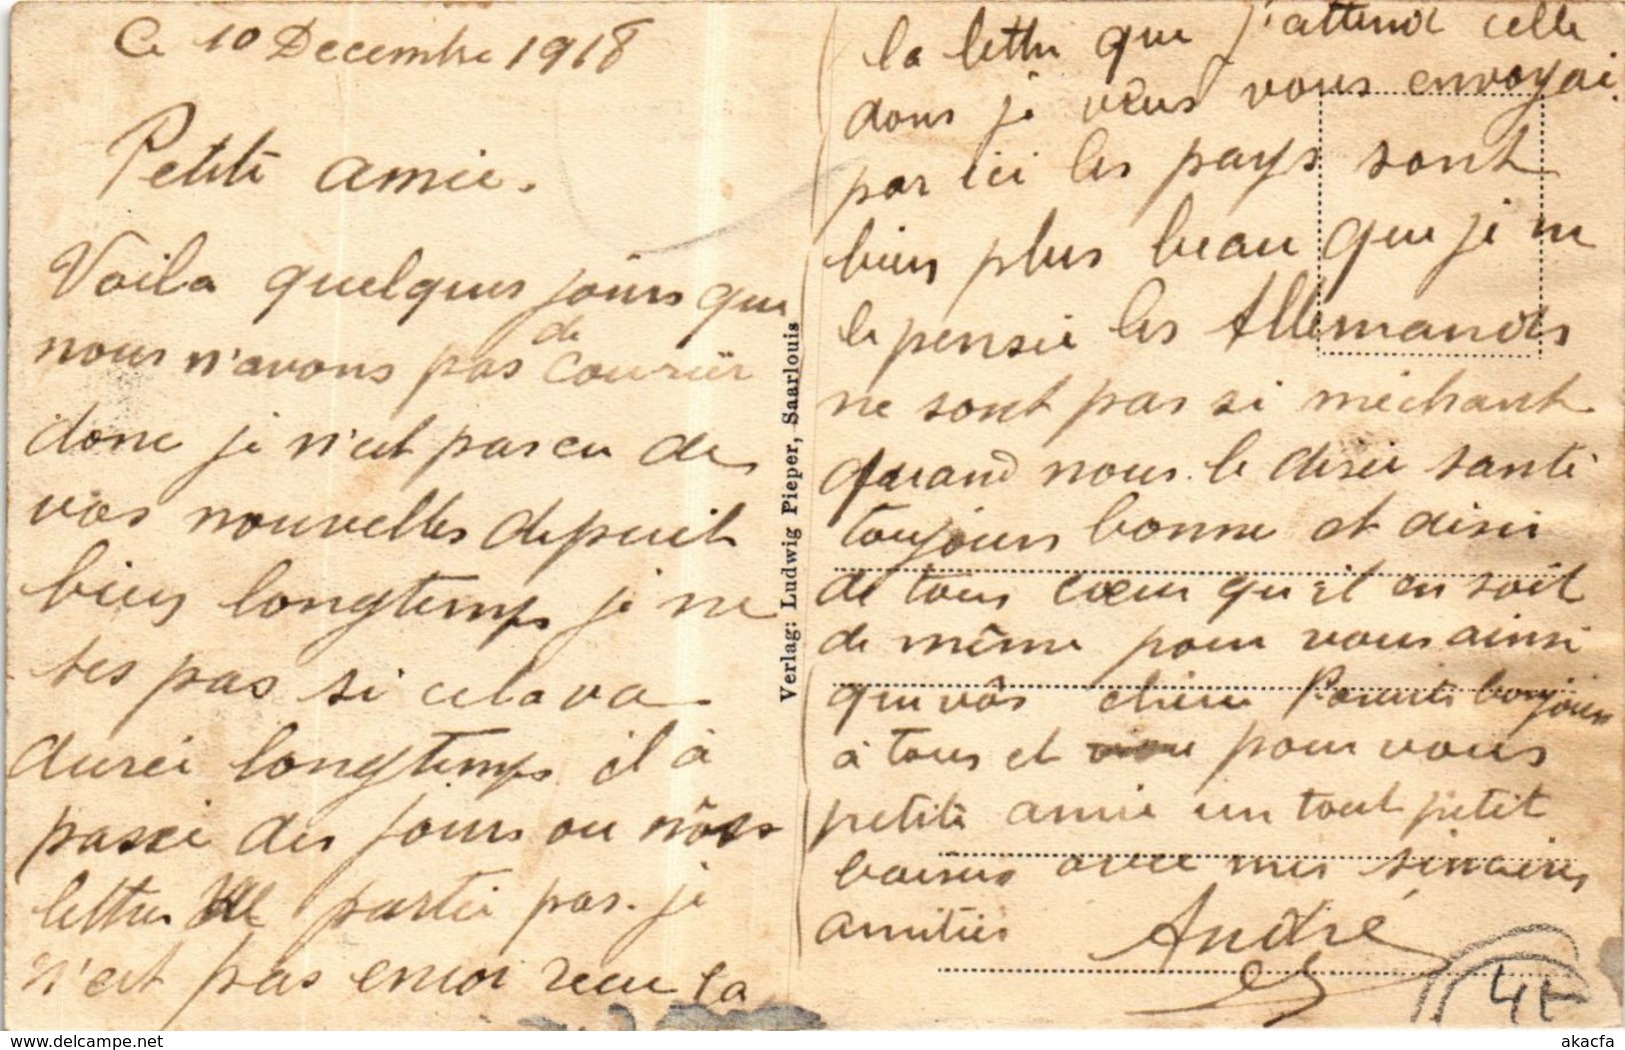 Ce 10 Decembre 1918
Petite amie.
Voila quelques jours que
nous n'avons pas de courrier
donc je n'est pas eu de
vos nouvelles depuit
bien longtemps je ne
ses pas si cela va
durée longtemps il à
passé des jours ou nôs
lettres partée pas. je
n'est pas encor recu la
la lettre que j'attend celle
dons je veus vous envoyai.
par ici les pays sont
bien plus beau que je ne
le pensée les Allemands
ne sont pas si méchant
quand nous le disée santé
toujours bonne et desir
de tous cœur qu'il en soit
de même pour vous ainsi
que vôs chère Parents bonjour
à tous et pour vous
petite amie un tout petit
baisers avec mes sincères
amitiés André
Verlag: Ludwig Pieper, Saarlouis
4E
akacfa
My WebStore On http://www.delcampe.net